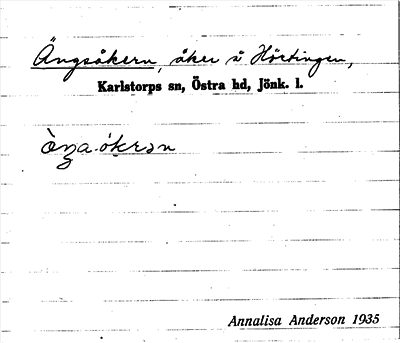 Ängsåkern, åker å Hördingen,
Karlstorps sn, Östra hd, Jönk. l.
Annalisa Anderson 1935